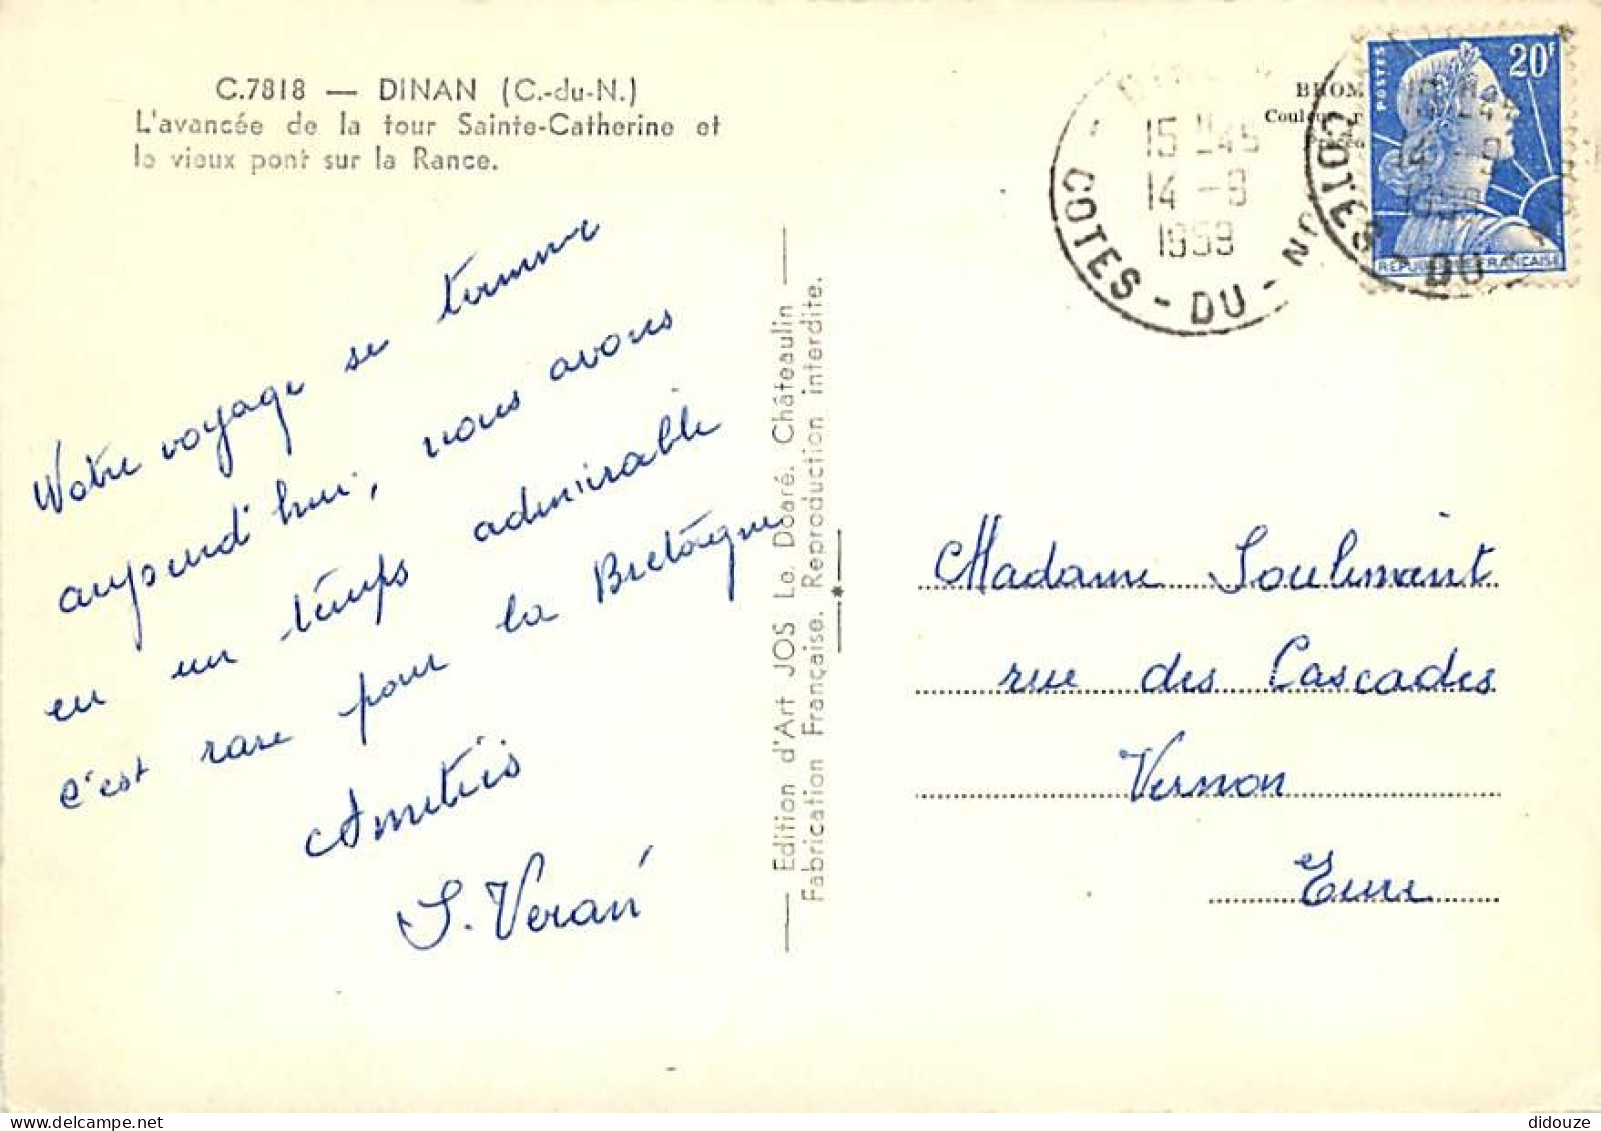 C.7818 — DINAN (C.-du-N.)
L'avancée de la tour Sainte-Catherine et
le vieux pont sur la Rance.
Notre voyage se termine
aujourd'hui, nous avons
eu un temps admirable
c'est rare pour la Bretagne
Amitiés
S. Veran
— Edition d'Art JOS Le Doaré. Châteaulin —
Fabrication Française. Reproduction interdite.
15 H45
14 - 9
1959
COTES - DU - NO
COTES - DU -
POSTES
20F
REPUBLIQUE FRANÇAISE
Madame
rue des Cascades
Vernon
Eure
didouze @ delcampe.net